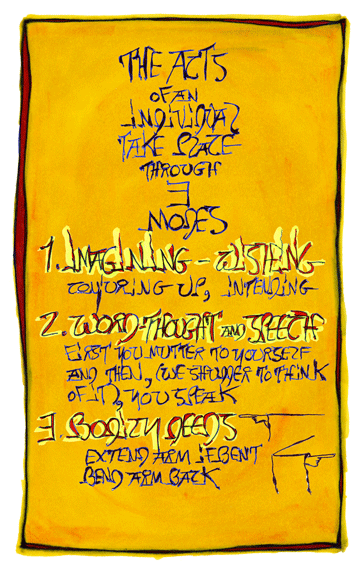 THE ACTS
OF AN
INDIVIDUAL
TAKE PLACE
THROUGH
3
MODES
1. IMAGINING - WISHING
CONJURING UP, INTENDING
2. WORD-THOUGHT AND SPEECH
FIRST YOU MUTTER TO YOURSELF
AND THEN, (WE SHUDDER TO THINK
OF IT), YOU SPEAK
3. BODILY DEEDS
EXTEND ARM IF BENT
BEND ARM BACK